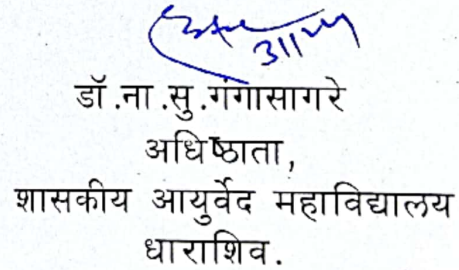 डॉ.ना.सु.गंगासागरे
अधिष्ठाता,
शासकीय आयुर्वेद महाविद्यालय
धाराशिव.